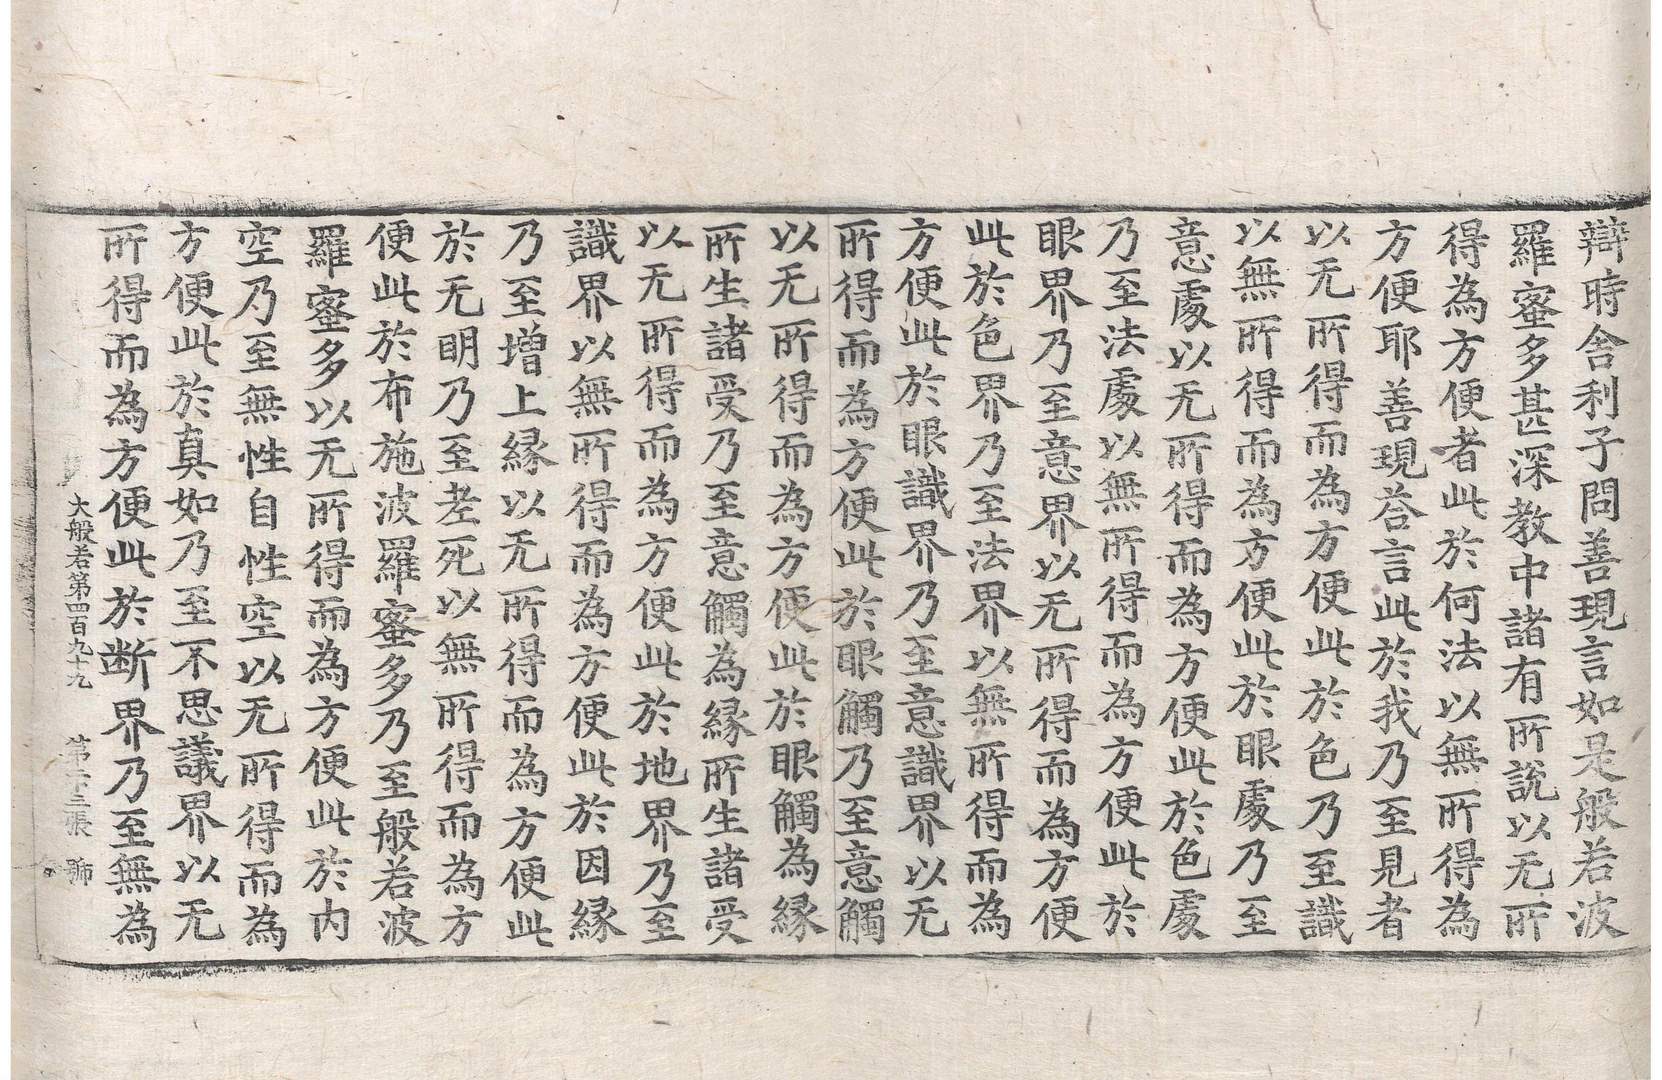 辯時舍利子問善現言如是般若波
羅蜜多甚深教中諸有所說以无所
得為方便者此於何法以無所得為
方便耶善現荅言此於我乃至見者
以无所得而為方便此於色乃至識
以無所得而為方便此於眼處乃至
意處以无所得而為方便此於色處
乃至法處以無所得而為方便此於
眼界乃至意界以无所得而為方便
此於色界乃至法界以無所得而為
方便此於眼識界乃至意識界以无
所得而為方便此於眼觸乃至意觸
以无所得而為方便此於眼觸為緣
所生諸受乃至意觸為緣所生諸受
以无所得而為方便此於地界乃至
識界以無所得而為方便此於因緣
乃至增上緣以无所得而為方便此
於无明乃至老死以無所得而為方
便此於布施波羅蜜多乃至般若波
羅蜜多以无所得而為方便此於內
空乃至無性自性空以无所得而為
方便此於真如乃至不思議界以无
所得而為方便此於断界乃至無為
大般若第四百九十九 第二十三張 師